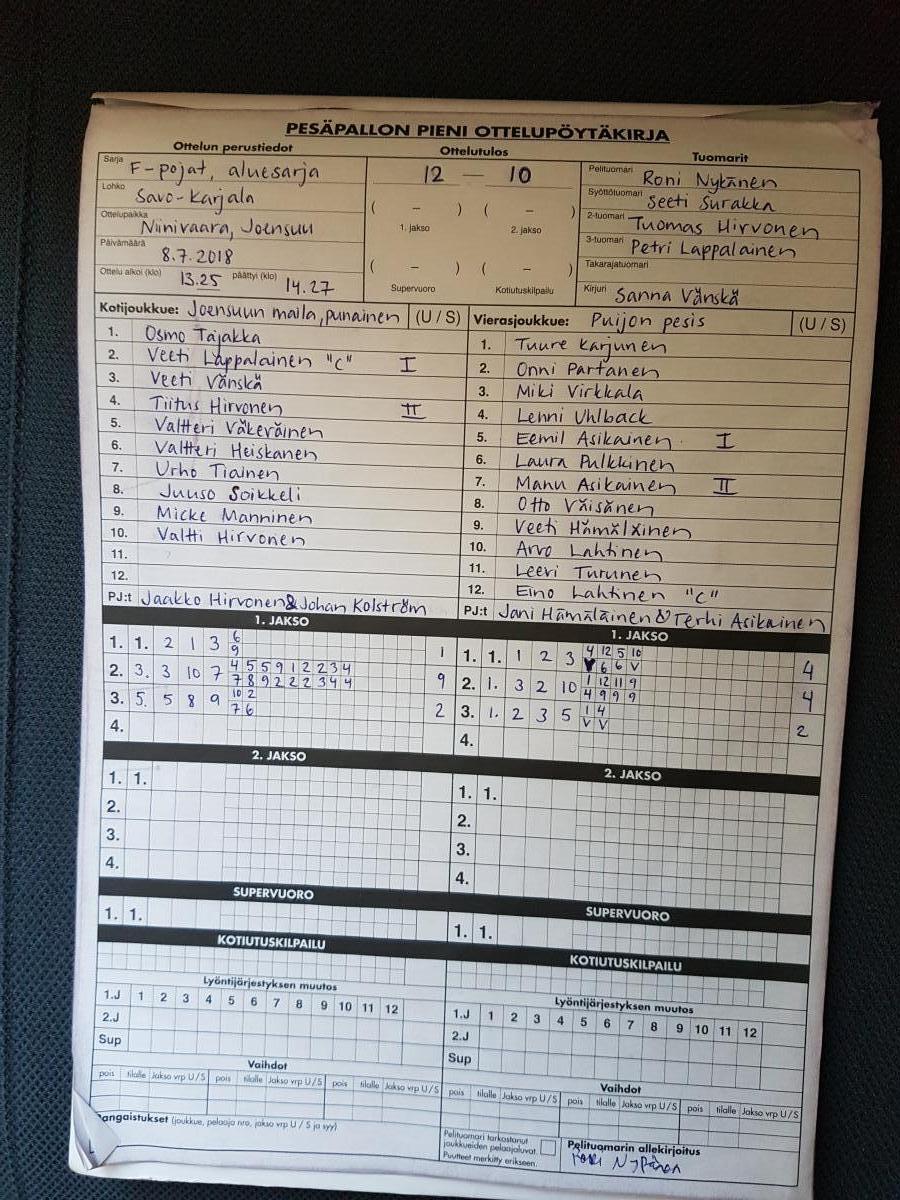 PESÄPALLON PIENI OTTELUPÖYTÄKIRJA
Ottelun perustiedot
Ottelutulos
Tuomarit
Sarja F-pojat, aluesarja
Lohko Savo-Karjala
Ottelupaikka Niinivaara, Joensuu
Päivämäärä 8.7.2018
Ottelu alkoi (klo) 13.25 päättyi (klo) 14.27
12 — 10
( – ) ( – )
1. jakso 2. jakso
( – ) ( – )
Supervuoro Kotiutuskilpailu
Pelituomari Roni Nykänen
Syöttötuomari Seeti Surakka
2-tuomari Tuomas Hirvonen
3-tuomari Petri Lappalainen
Takarajatuomari
Kirjuri Sanna Vänskä
Kotijoukkue: Joensuun maila, punainen (U / S)
1. Osmo Tajakka
2. Veeti Lappalainen "C" I
3. Veeti Vänskä
4. Tiitus Hirvonen II
5. Valtteri Väkeväinen
6. Valtteri Heiskanen
7. Urho Tiainen
8. Juuso Soikkeli
9. Micke Manninen
10. Valtti Hirvonen
11.
12.
PJ:t Jaakko Hirvonen & Johan Kolström
Vierasjoukkue: Puijon pesis (U / S)
1. Tuure Karjunen
2. Onni Partanen
3. Miki Virkkala
4. Lenni Uhlback
5. Eemil Asikainen I
6. Laura Pulkkinen
7. Manu Asikainen II
8. Otto Väisänen
9. Veeti Hämäläinen
10. Arvo Lahtinen
11. Leevi Turunen
12. Eino Lahtinen "C"
PJ:t Jani Hämäläinen & Terhi Asikainen
1. JAKSO
1. 1. 2 1 3 6 1
9
2. 3. 3 10 7 4 5 5 9 1 2 2 3 4 9
7 8 9 2 2 2 3 4 4
3. 5. 5 8 9 10 2 2
7 6
4.
1. JAKSO
1. 1. 1 2 3 4 12 5 10 4
6 6 V
2. 1. 3 2 10 1 12 11 9 4
4 9 9 9
3. 1. 2 3 5 1 4 2
V V
4.
2. JAKSO
1. 1.
2.
3.
4.
2. JAKSO
1. 1.
2.
3.
4.
SUPERVUORO
1. 1.
SUPERVUORO
1. 1.
KOTIUTUSKILPAILU
KOTIUTUSKILPAILU
Lyöntijärjestyksen muutos
1.J 1 2 3 4 5 6 7 8 9 10 11 12
2.J
Sup
Lyöntijärjestyksen muutos
1.J 1 2 3 4 5 6 7 8 9 10 11 12
2.J
Sup
Vaihdot
pois tilalle Jakso vrp U / S pois tilalle Jakso vrp U / S pois tilalle Jakso vrp U / S
Vaihdot
pois tilalle Jakso vrp U / S pois tilalle Jakso vrp U / S pois tilalle Jakso vrp U / S
angaistukset (joukkue, pelaaja nro, jakso vrp U / S ja syy)
Pelituomari tarkastanut
joukkueiden pelaajaluvat.
Puutteet merkitty erikseen.
Pelituomarin allekirjoitus
Roni Nykänen